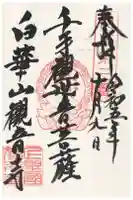 奉拝
令和五年
十月九日
千手観世音菩薩
白華山観音寺